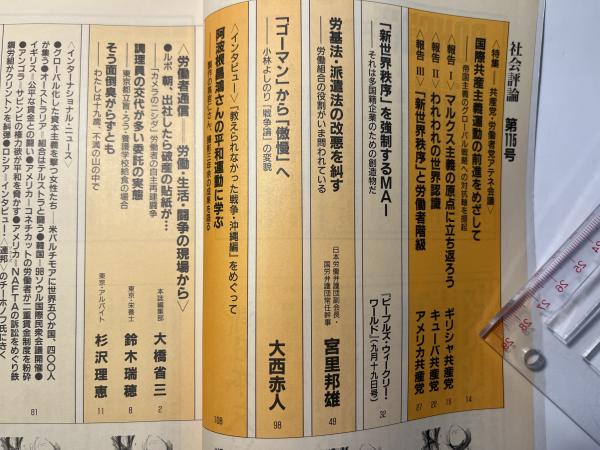 社会評論 第115号
〈特集――共産党・労働者党アテネ会議〉
国際共産主義運動の前進をめざして
帝国主義のグローバル戦略への対抗軸を提起
14
〈報告Ⅰ〉マルクス主義の原点に立ち返ろう
ギリシャ共産党
15
〈報告Ⅱ〉われわれの世界認識
キューバ共産党
22
〈報告Ⅲ〉「新世界秩序」と労働者階級
アメリカ共産党
27
「新世界秩序」を強制するMAI
――それは多国籍企業のための創造物だ
『ピープルズ・ウィークリー・
ワールド』(九月十九日号)
32
労基法・派遣法の改悪を糾す
――労働組合の役割がいま問われている
日本労働弁護団副会長・
国労弁護団常任幹事
宮里邦雄
49
「ゴーマン」から「傲慢」へ
――小林よしのり『戦争論』の変貌
大西赤人
98
〈インタビュー〉『教えられなかった戦争・沖縄編』をめぐって
阿波根昌鴻さんの平和運動に学ぶ
108
〈労働者通信――労働・生活・闘争の現場から〉
●ルポ 朝、出社したら破産の貼紙が…
「カメラのニシダ」労働者の自主再建闘争
本誌編集部
大橋省三
2
調理員の交代が多い委託の実態
東京都立盲・ろう・養護学校給食の場合
東京・栄養士
鈴木瑞穂
8
そう面倒臭がらすとも
わたしは十九歳、不満の山の中で
東京・アルバイト
杉沢理恵
11
〈インターナショナル・ニュース〉
●グローバル化した資本主義を撃つ女性たち――米バルチモアに世界五〇か国、四〇〇人
が集う●オーストラリア――組合はテルストラと闘う●韓国――98ソウル国際民衆会議開催●
イギリス――公平な賃金との闘い●アメリカ――コネチカットの労働者が二重賃金制度を粉砕
●アンゴラ――サビンビの権力欲が平和を脅かす●アメリカ――NAFTAの訴訟をめぐり鉄
鋼労組がクリントンを糾弾●ロシア――インタビュー・〈連邦〉のチーホノフ氏にきく
81